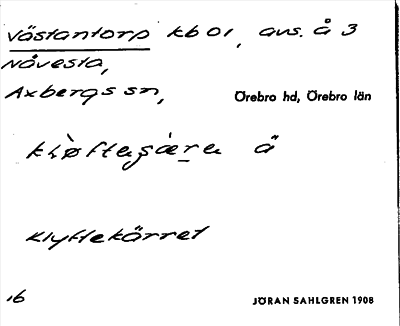 Västantorp kb 01, avs. å 3
Nåvesta,
Axbergs sn,
Örebro hd, Örebro län
ä
Klyftekärret
16
JÖRAN SAHLGREN 1908